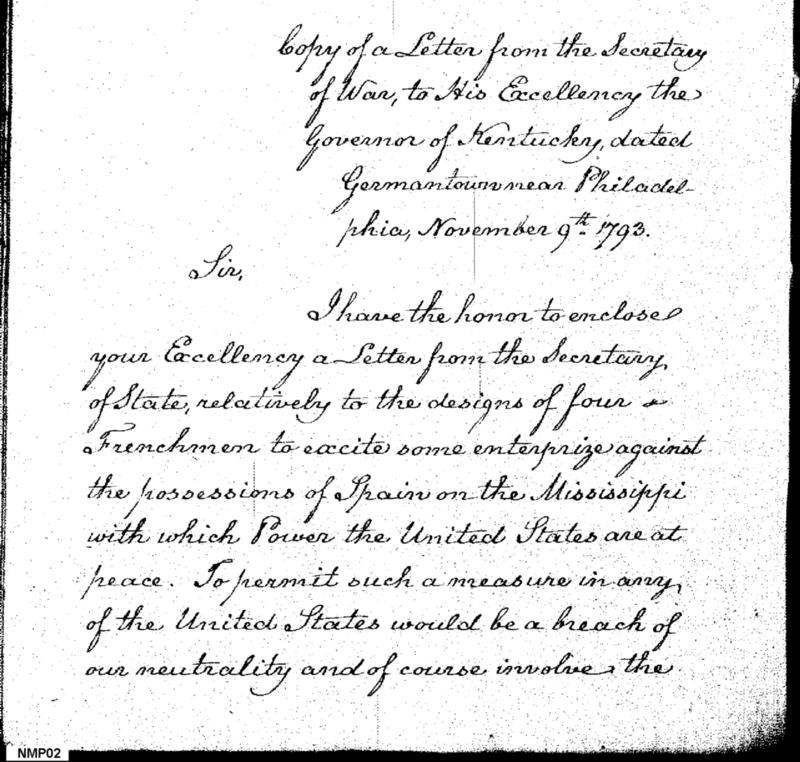 Copy of a Letter from the Secretary
of War, to His Excellency the
Governor of Kentucky, dated
Germantown near Philadel-
phia, November 9th. 1793.
Sir,
I have the honor to enclose
your Excellency a Letter from the Secretary
of State, relatively to the designs of four
Frenchmen to excite some enterprize against
the possessions of Spain on the Mississippi
with which Power the United States are at
peace. To permit such a measure in any
of the United States would be a breach of
our neutrality and of course involve the
NMP02